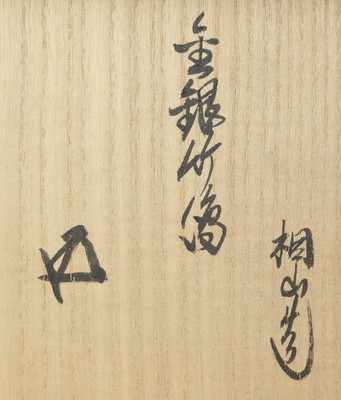 金銀竹滴
相山造